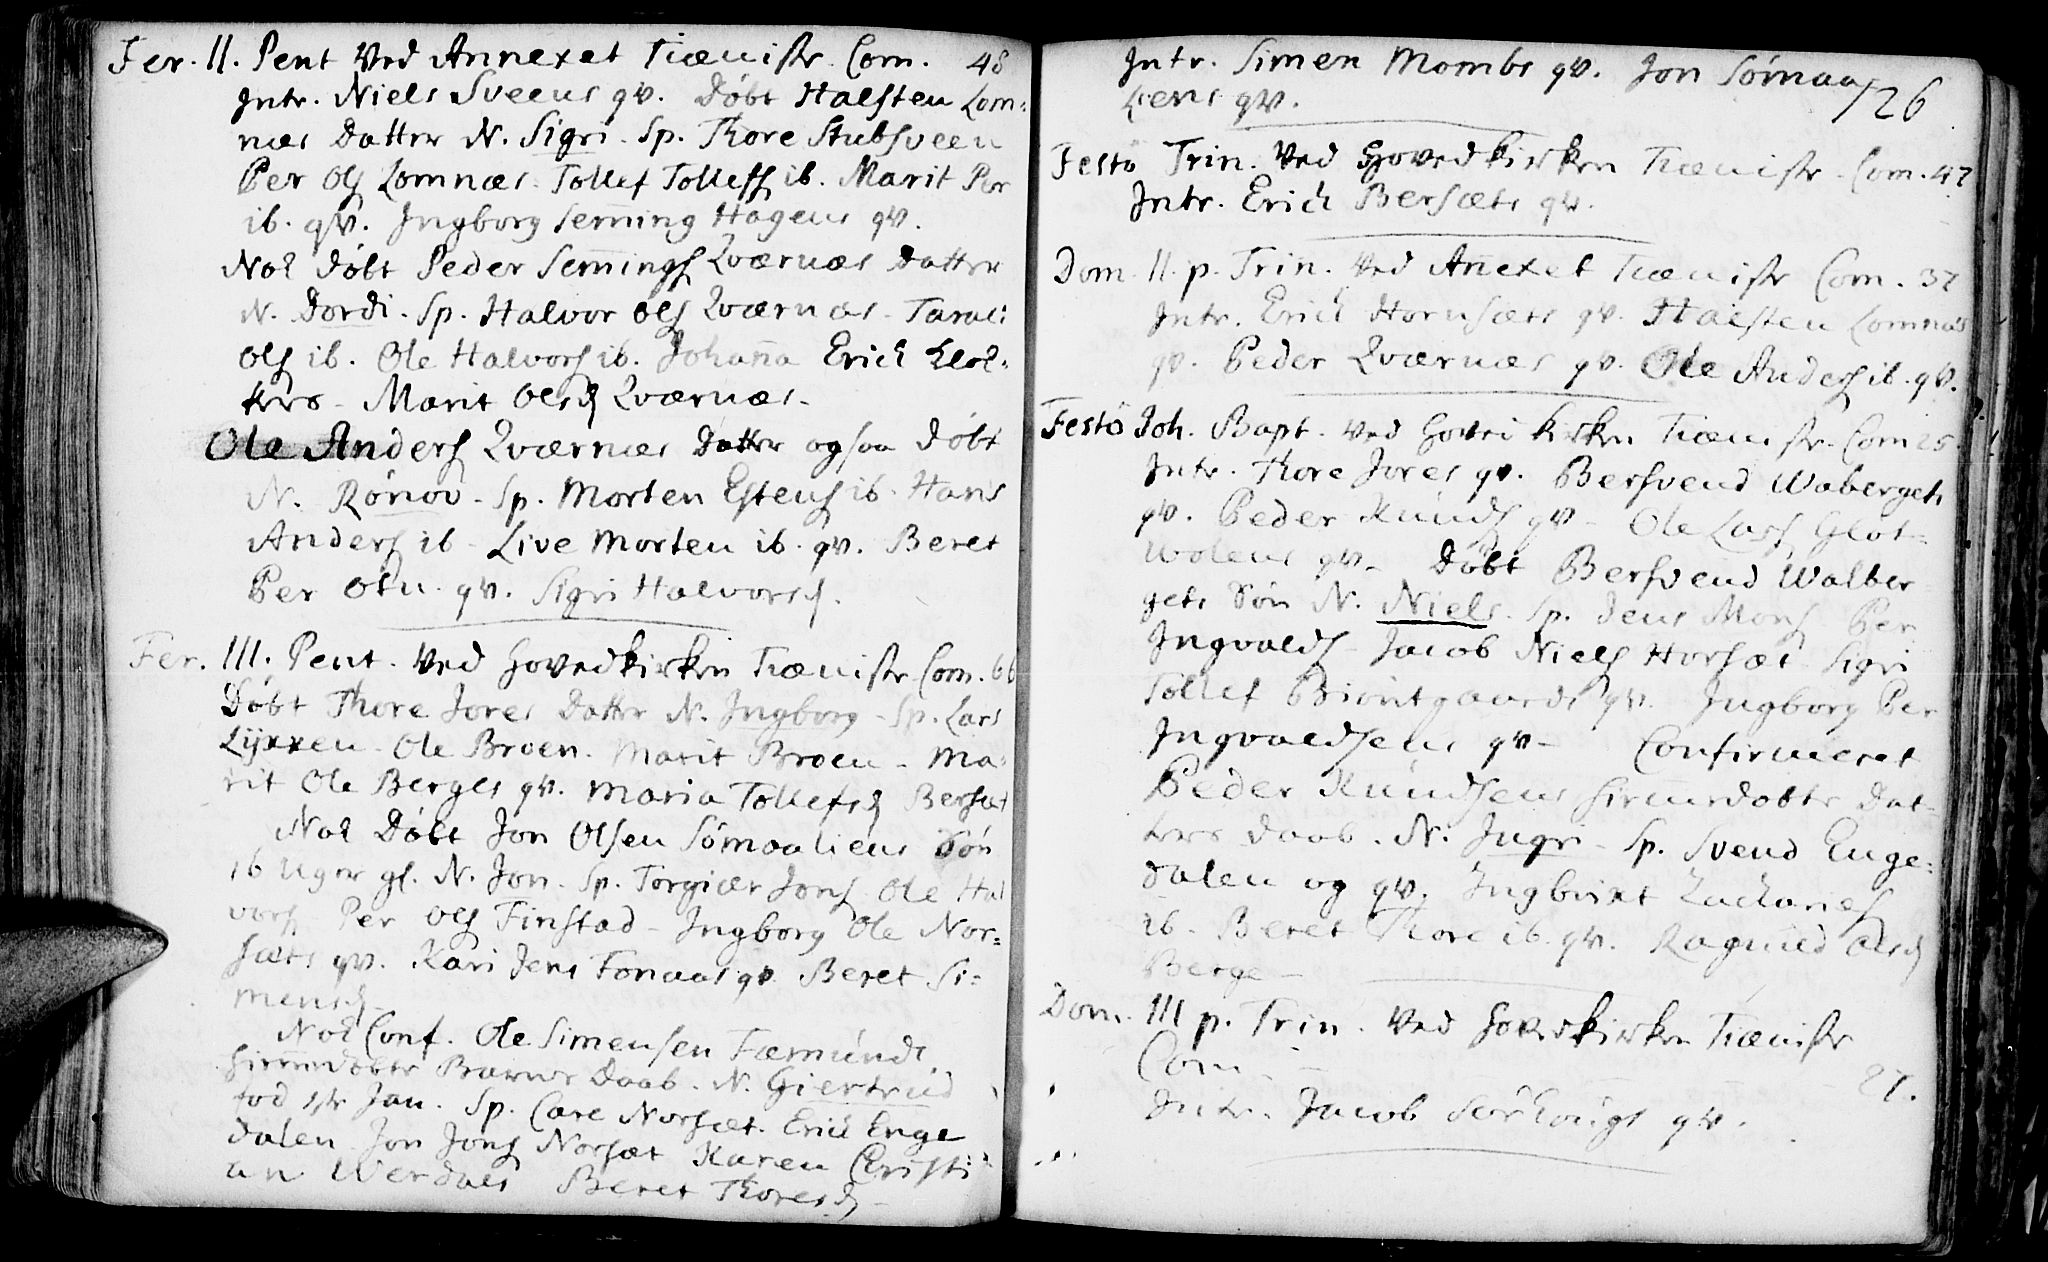 Fer. II. Pent Ved Annexet Tieniste Com. 48
Intr. Niels Sveens qv. Døbt Halsten Lom:
næs Datter N. Sigri. Sp. Thore Stubsveen
Per Ols Lomnæs. Tollef Tollefs ib. Marit Per
ib. qv. Ingborg Sem̄ing Hagens qv.
Nok døbt Peder Sem̄ings Qværnæs Datter
N. Dordi. Sp. Halvor Ols Qværnæs. Tarali
Ols ib. Ole Halvors ib. Johan̄a Erich Klok:
kers. Marit Olsd Qværnæs.
Ole Anders Qværnæs Datter ogsaa døbt
N. Rønov. Sp. Morten Estens ib. Hans
Anders ib. Live Morten ib. qv. Beret
Per qv. Sigri Halvorsd.
Fer. III. Pent. Ved Hovedkirken Tieniste Com. 66
Døbt Thore Jores Datter N. Ingborg. Sp. Lars
Lyxxen. Ole Broen. Marit Broen. Ma:
rit Ole Berges qv. Maria Tollefsd Bersæt
Nok Døbt Jon Olsen Sømaaliens Søn
16 Uger gl. N. Jon. Sp. Torgier Jons. Ole Hal
vors Per Ols Finstad. Ingborg Ole Nor:
sæts qv. Kari Jens Fonaas qv. Beret Si:
mensd.
Nok Conf. Ole Simensen Fæmunds
hiem̄edøbte Barns Daab. N. Giertrud
fød 1ste Jan. Sp. Care Norsæt. Erich Enge
dalen Jon Jons Norsæt Karen Christi
an Werdals Beret Thoresd.
Intr. Simen Mombs qv. Jon Sømaa
liens qv.
126
Festo Trin. Ved Hovedkirken Tieniste. Com. 47
Intr. Erich Bersæts qv.
Dom. II. p. Trin. Ved An̄exet Tieniste Com. 37
Intr. Erich Hornsæts qv. Halsten Lomnæs
qv. Peder Qværnæs qv. Ole Anders ib. qv.
Festo Joh. Bapt. Ved Hovedkirken Tieniste Com 25.
Intr. Thore Jores qv. Bersvend Wabergets
qv. Peder Knuds qv. Ole Lars Glot-
wolens qv. Døbt Bersvend Walber
gets Søn N. Niels. Sp. Jens Mons Per
Ingvalds Jacob Niels Horsæt Sigri
Tollef Biontgaards qv. Ingborg Per
Ingvaldsens qv. Confirmeret
Peder Knudsens hiemedøbte Dat-
ters Daab. N. Ingri. Sp. Svend Enge:
dalen og qv. Ingbrixt Zacharies
ib. Beret Thore ib. qv. Ragnild Olsd
Berge
Dom. III p. Trin. Ved Hovedkirken Tieniste
Com. 27.
Intr. Jacob Sørhougs qv.